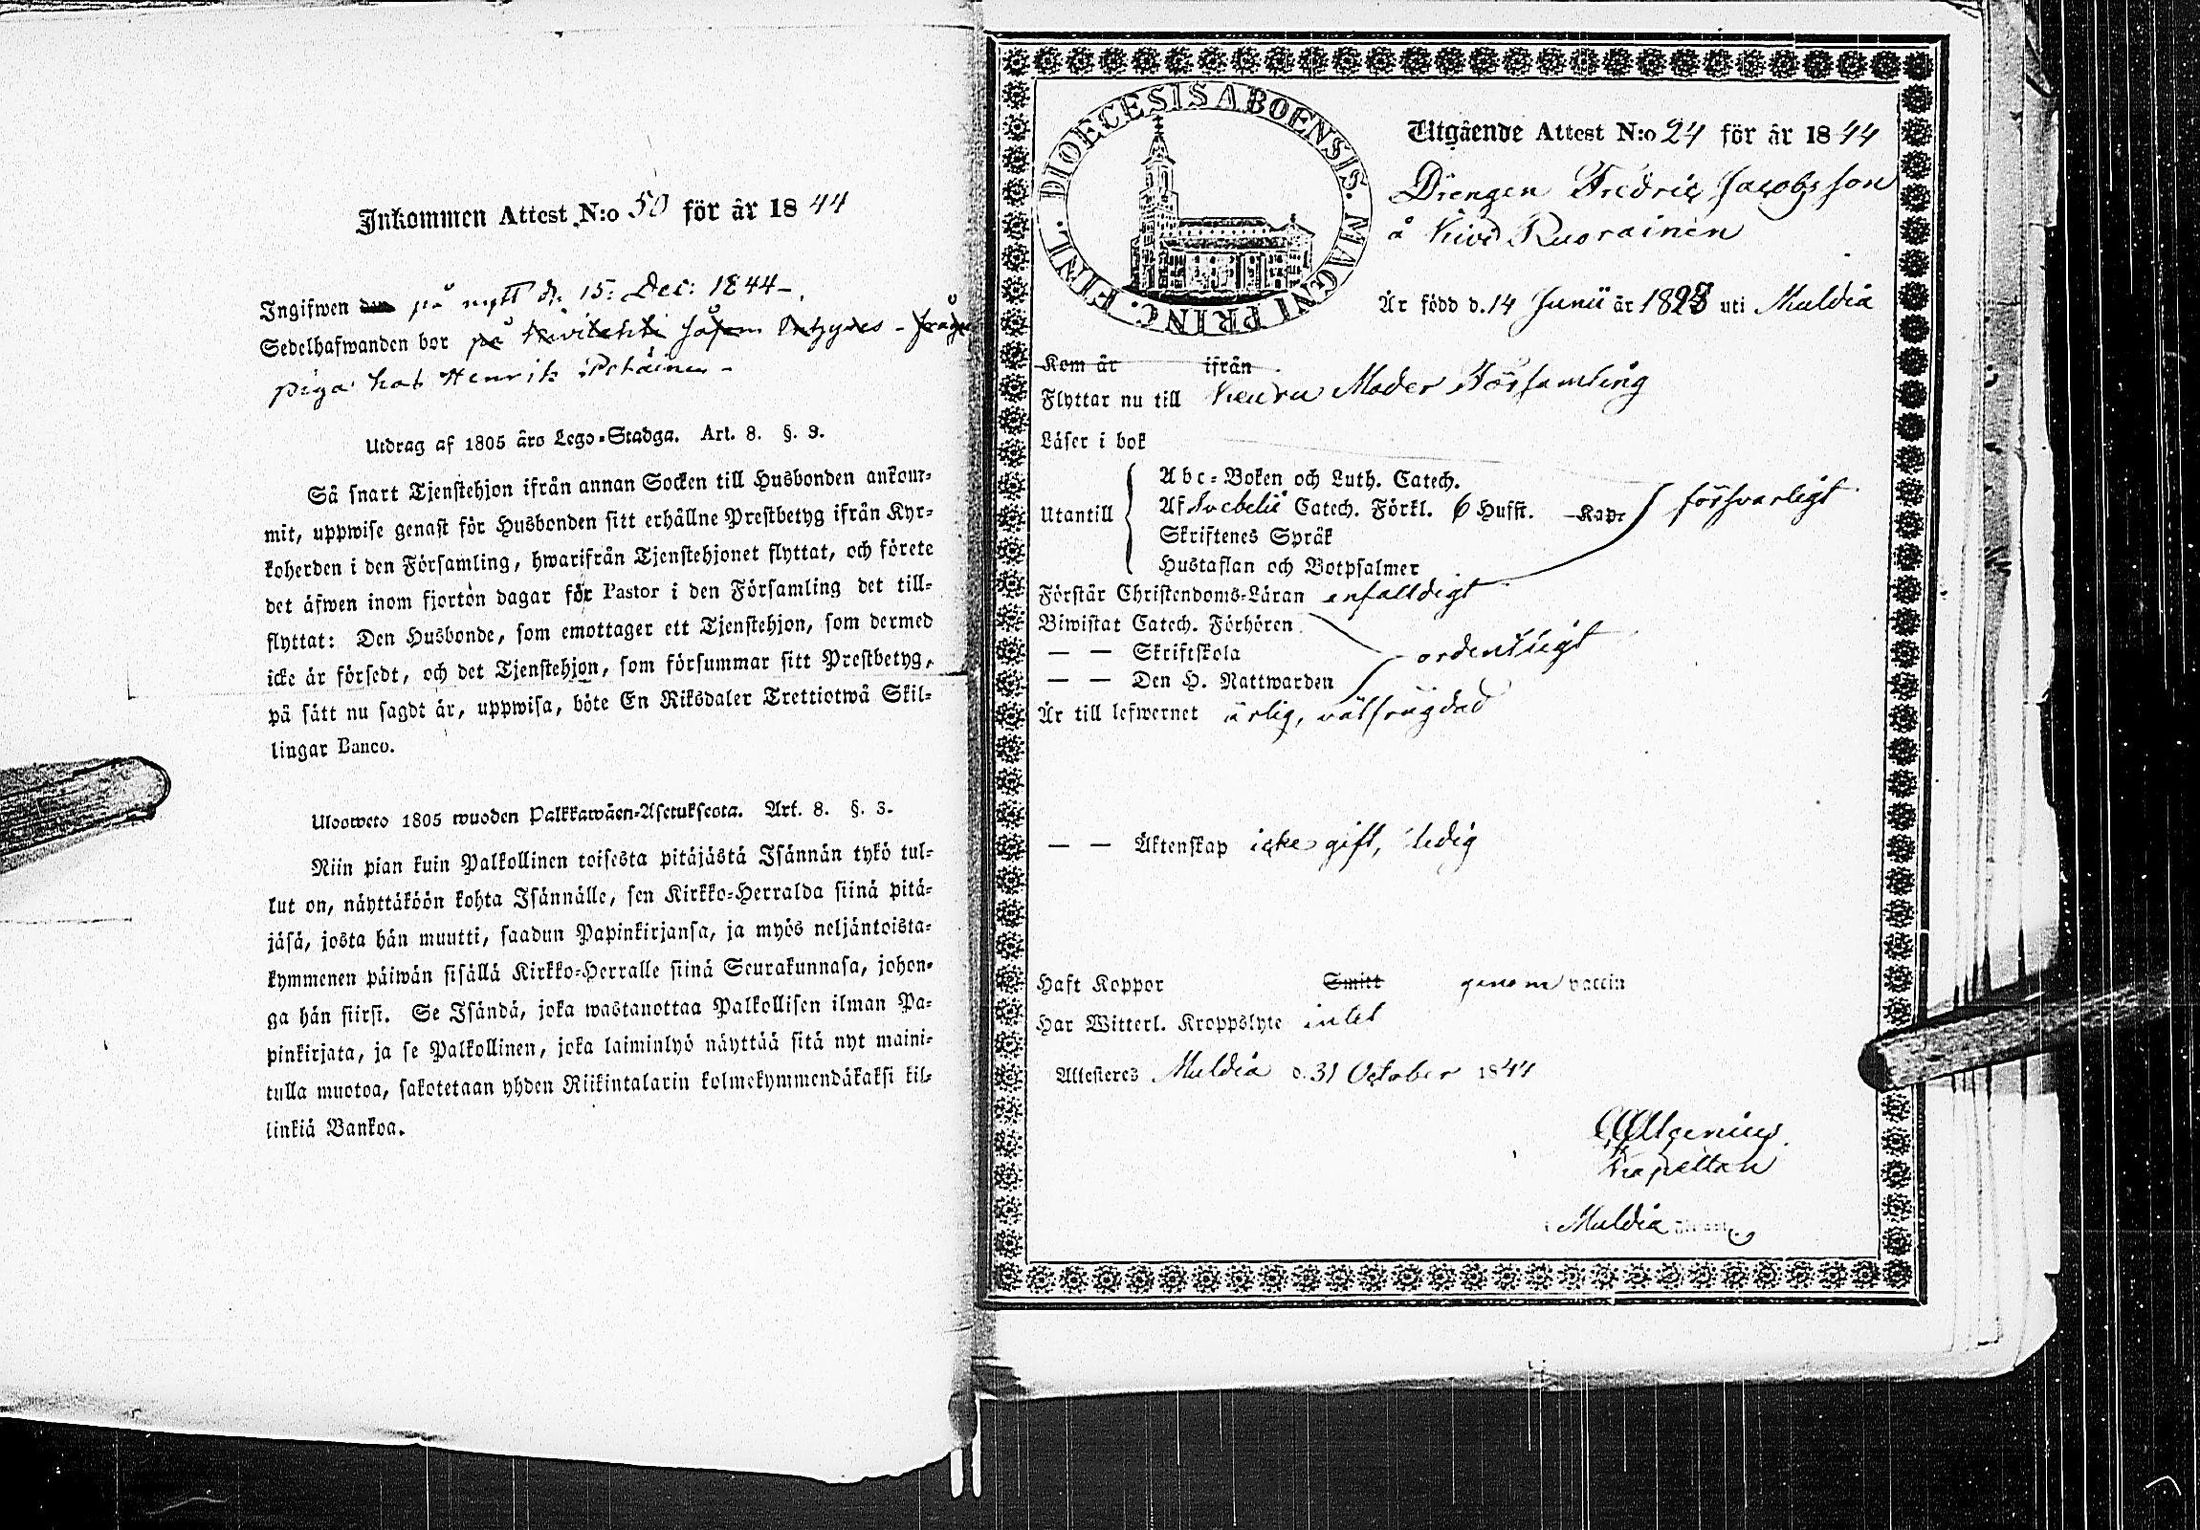 Inkommen Attest N:o 50 för år 1844
Ingifwen den på nytt d. 15: Dec: 1844 –
Sedelhafwanden bor på
piga hos Henrik
Utdrag af 1805 års Lego-Stadga. Art. 8. §. 3.
Så snart Tjenstehjon ifrån annan Socken till Husbonden ankom-
mit, uppwise genast för Husbonden sitt erhållne Prestbetyg ifrån Kyr-
koherden i den Församling, hwarifrån Tjenstehjonet flyttat, och förete
det äfwen inom fjorton dagar för Pastor i den Församling det till-
flyttat: Den Husbonde, som emottager ett Tjenstehjon, som dermed
icke är försedt, och det Tjenstehjon, som försummar sitt Prestbetyg,
på sätt nu sagdt är, uppwisa, böte En Riksdaler Trettiotwå Skil-
lingar Banco.
Ulosweto 1805 wuoden Palkkawäen-Asetuksesta. Art. 8. §. 3.
Niin pian kuin Palkollinen toisesta pitäjästä Isännän tykö tul-
lut on, näyttäköön kohta Isännälle, sen Kirkko-Herralda siinä pitä-
jäsä, josta hän muutti, saadun Papinkirjansa, ja myös neljäntoista-
kymmenen päiwän sisällä Kirkko-Herralle siinä Seurakunnasa, johon-
ga hän siirsi. Se Isändä, joka wastanottaa Palkollisen ilman Pa-
pinkirjata, ja se Palkollinen, joka laiminlyö näyttää sitä nyt maini-
tulla muotoa, sakotetaan yhden Riikintalarin kolmekymmendäkaksi kil-
linkiä Bankoa.
DIOECESIS ABOENSIS. MAGNI PRINC. FINL.
Utgående Attest N:o 24 för år 1844
Drengen Fredric Jacobsson
å Kivi Ruorainen
Är född d. 14 Junii år 1823 uti Muldia
Kom år ifrån
Flyttar nu till Keuru Moder Församling
Läser i bok
Utantill
Abc-Boken och Luth. Catech.
Af Svebelii Catech. Förkl. 6 Hufst. Kap: försvarligt
Skriftenes Språk
Hustaflan och Botpsalmer
Förstår Christendoms-Läran enfalldigt
Biwistat Catech. Förhören
— — Skriftskola ordentligt
— — Den H. Nattwarden
Är till lefwernet ärlig, välfrägdad
— — Äktenskap icke gift, ledig
Haft Koppor Smitt genom vaccin
Har Witterl. Kroppslyte intet
Attesteras Muldia d. 31 October 1844
Kapellan
i Muldia